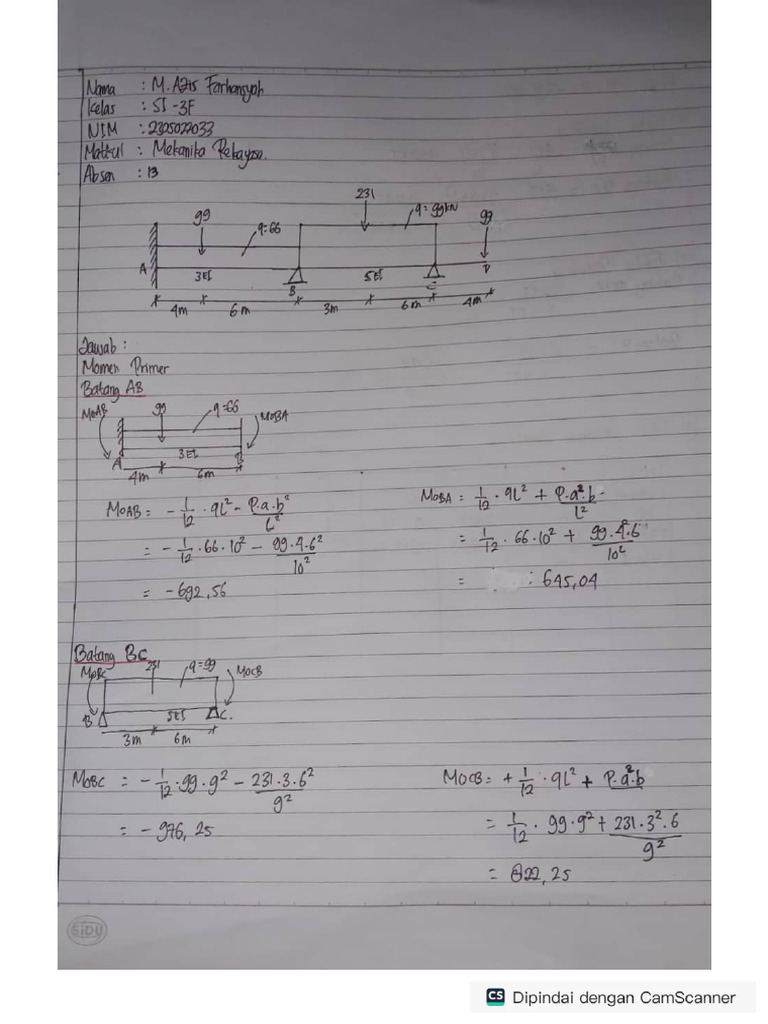 Nama : M. Azis Farhansyah
Kelas : SI-3F
NIM : 2325022033
Matkul : Mekanika Rekayasa.
Absen : 13
99
q=66
231
q=99kN
99
A
3EI
B
5EI
C
D
4m
6m
3m
6m
4m
Jawab :
Momen Primer
Batang AB
MOAB
99
q=66
MOBA
A
3EI
B
4m
6m
MOAB = - 1/12 . qL² - P.a.b²/L²
= - 1/12 . 66 . 10² - 99.4.6²/10²
= - 692,56
MOBA = 1/12 . qL² + P.a².b/L²
= 1/12 . 66 . 10² + 99.4².6/10²
= : 645,04
Batang BC
MOBC
231
q=99
MOCB
B
5EI
C.
3m
6m
MOBC = - 1/12 . 99 . 9² - 231.3.6²/9²
= - 976,25
MOCB = + 1/12 . qL² + P.a².b
= 1/12 . 99 . 9² + 231.3².6/9²
= 822,25
SIDU
CS Dipindai dengan CamScanner